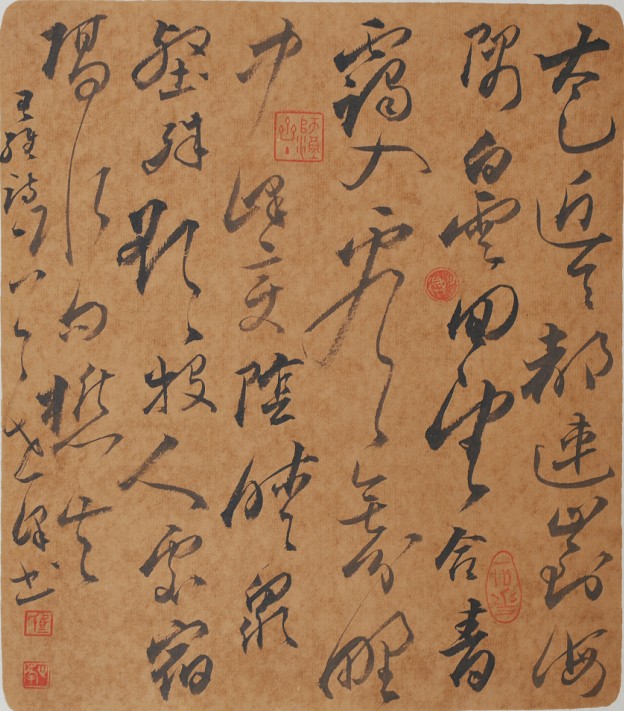 太乙近天都連山到海
隅白雲回望合青
靄入看無分野
中峰變陰晴眾
壑殊欲投人處宿
隔水向樵夫
王維詩 書